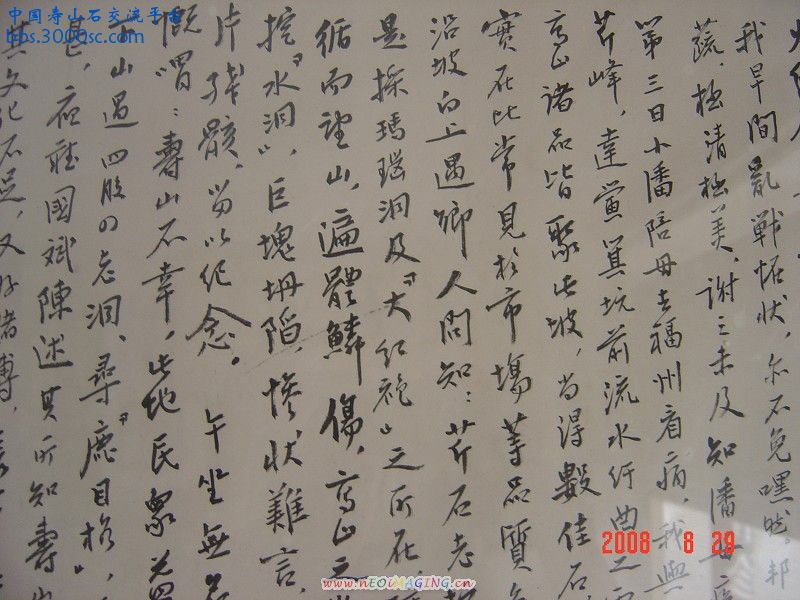 中国寿山石交流平台
bbs.3000sc.com
我旱間亂戰帳狀，亦不免嘿
蔬，極清極美，謝之未及知潘母
第三日小潘陪母去福州看病，我與
芹峰，達黨箕坑前流水紆曲之
高山諸品皆聚此坡，当得數佳石
實在比常見於市場等品質
沿坡向上遇鄉人問知：芹石老
是採瑪瑙洞及“大红袍”之所在，
循而望山，遍體鱗傷，高山之
挖“水洞”，巨塊坍陷，慘狀難言，
片殘骸，留以纪念。 午坐無
慨喟：壽山石幸，此地民衆
山過四股四老洞、尋“鹿目格”，
甚，夜聽國斌陳述其所知壽
其文化不足，又好賭博，
2008 8 29
www.nEOiMAGING.cn